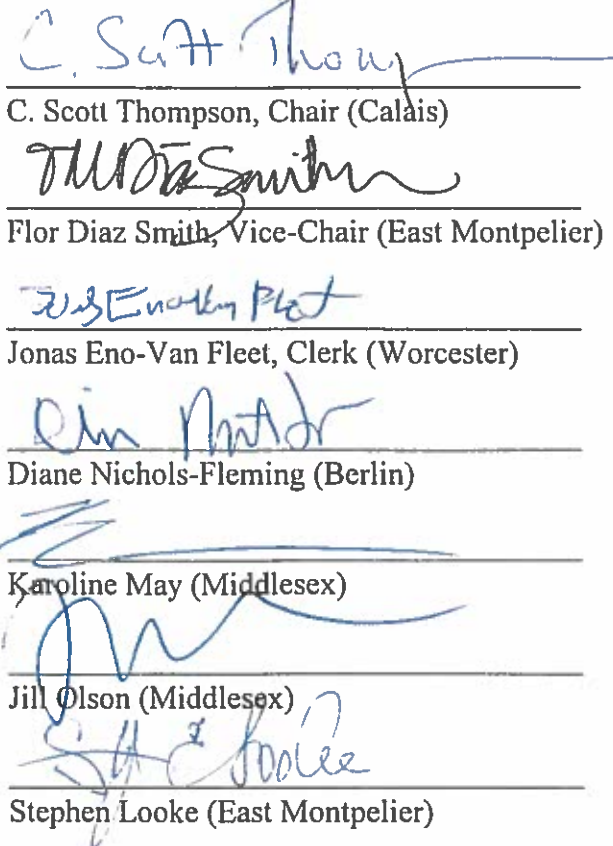 C. Scott Thom
C. Scott Thompson, Chair (Calais)
Diaz Smith
Flor Diaz Smith, Vice-Chair (East Montpelier)
Jonas Eno-Van Fleet, Clerk (Worcester)
Diane Nichols-Fleming (Berlin)
Karoline May (Middlesex)
Jill Olson (Middlesex)
Looke
Stephen Looke (East Montpelier)